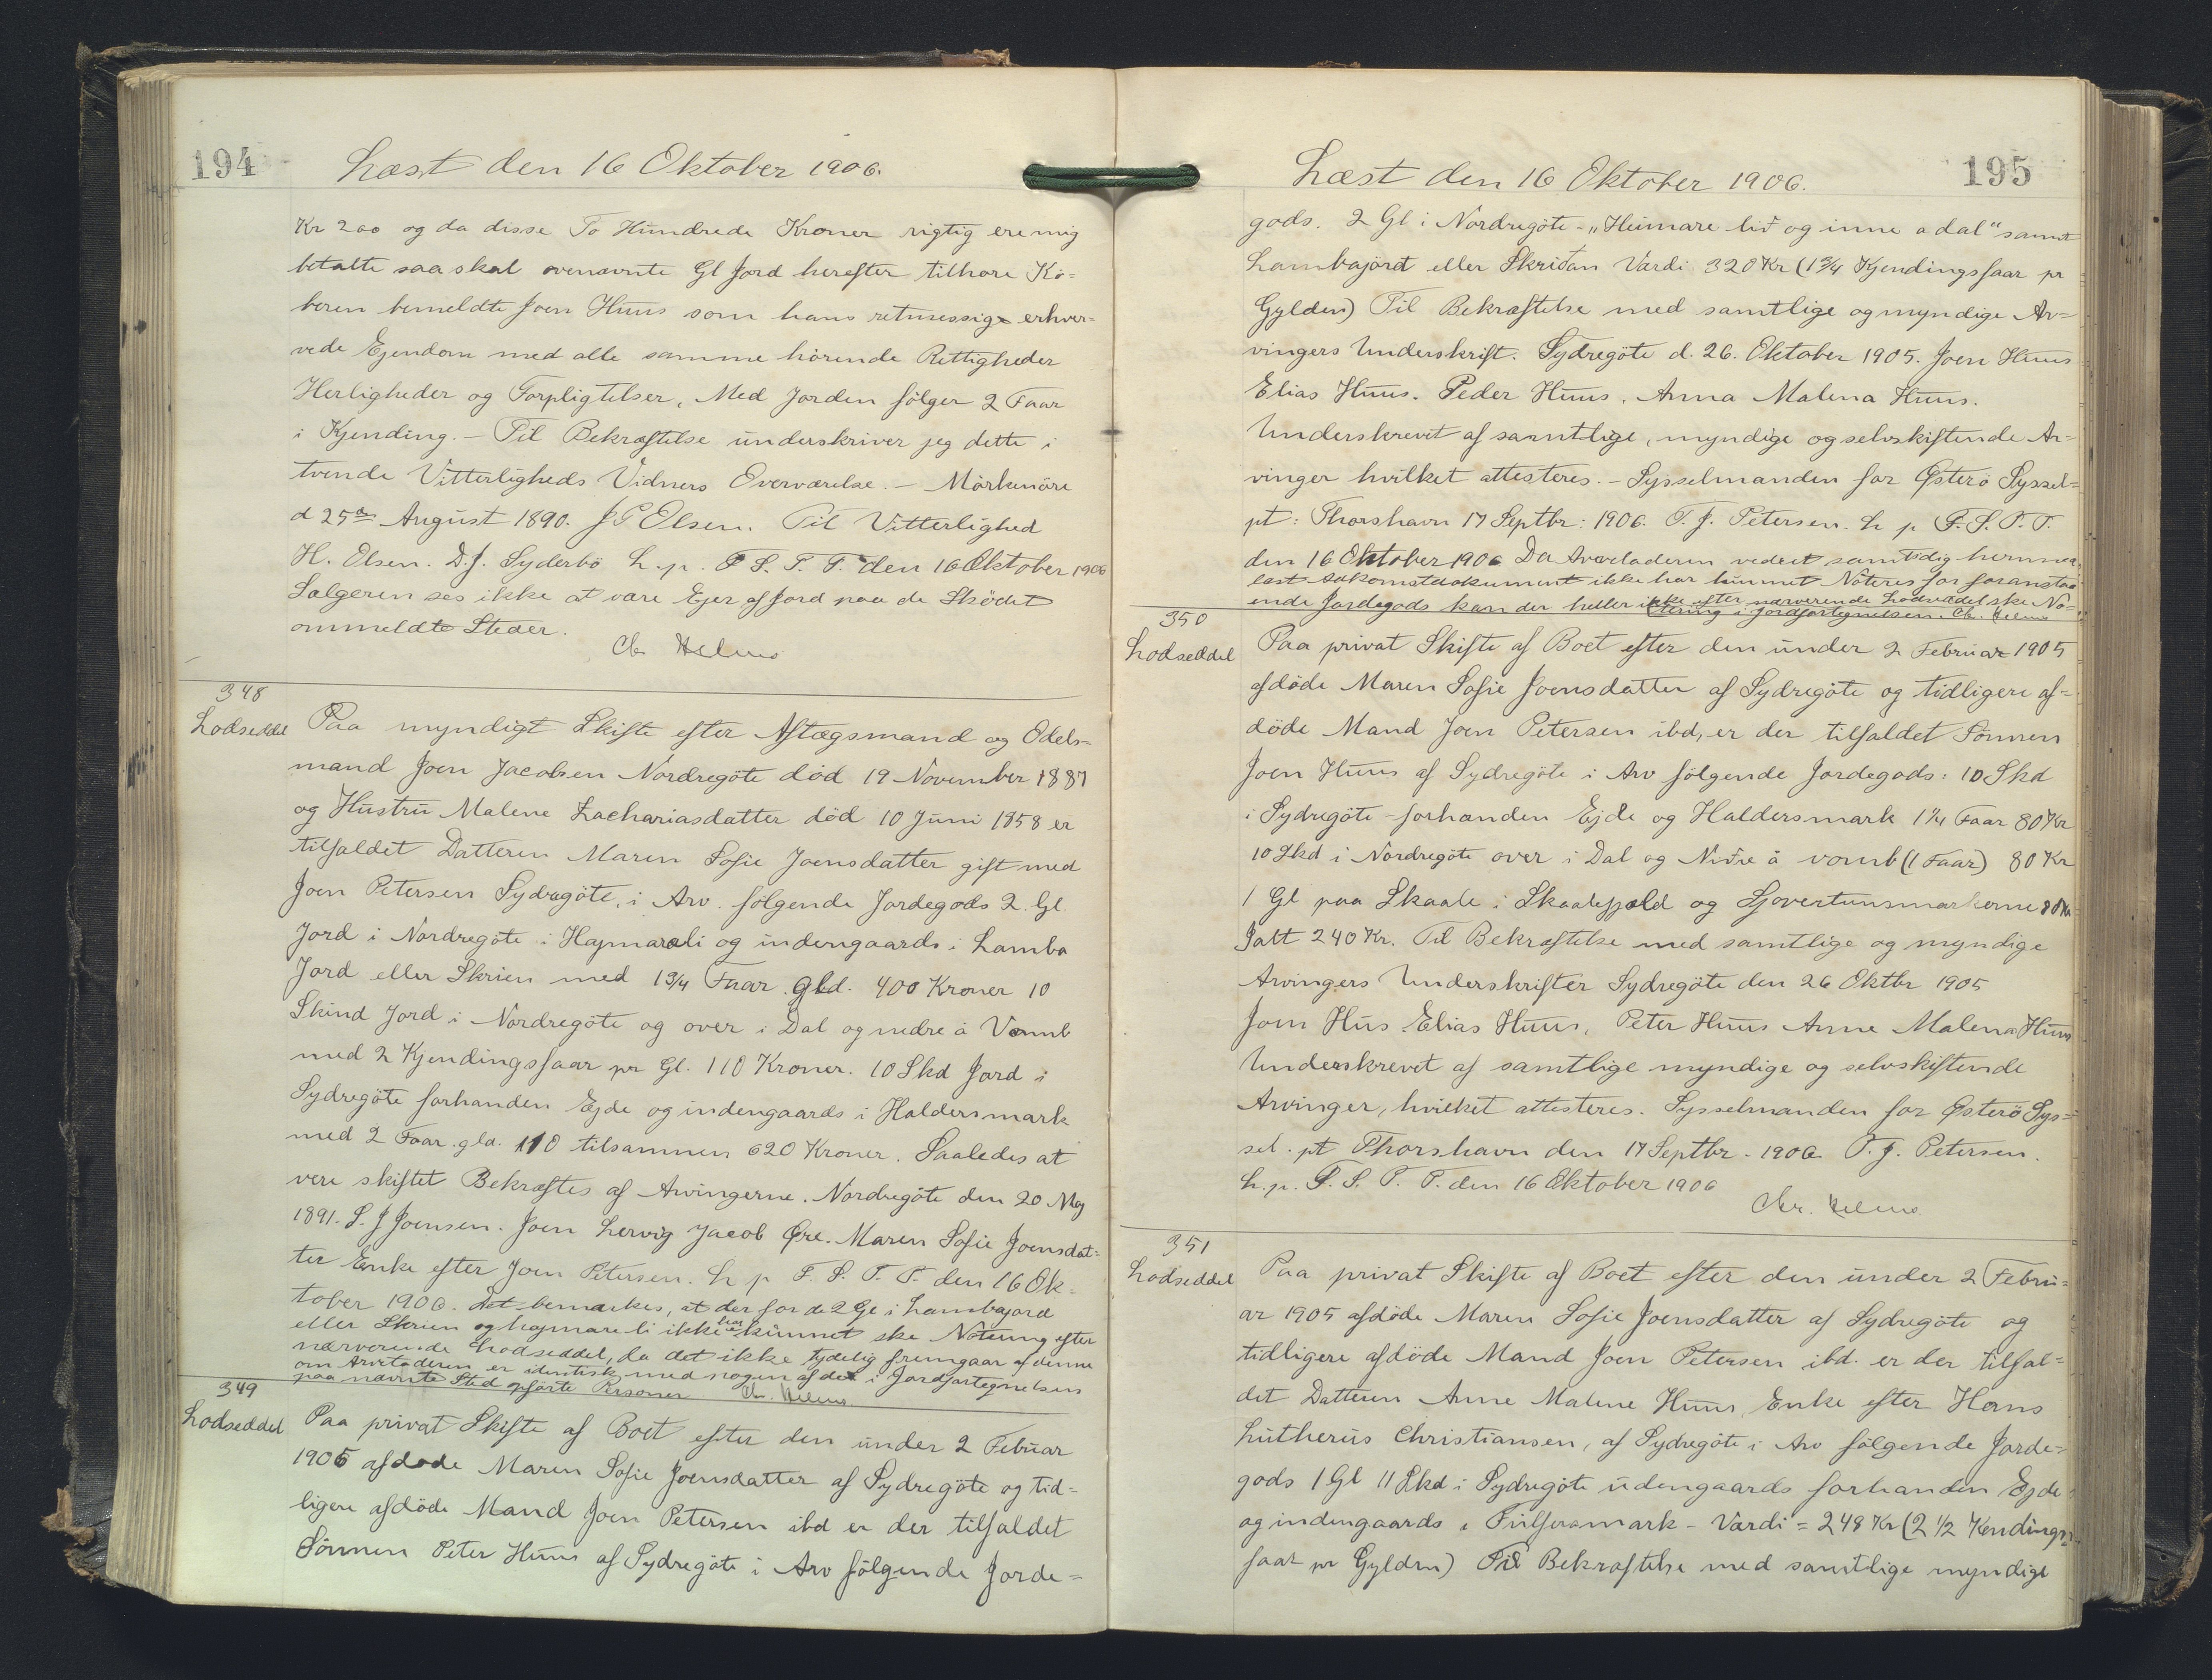 194
Læst den 16 Oktober 1906.
Kr 200 og da disse To Hundrede Kroner rigtig ere mig
betalte saa skal ovenævnte Gl Jord herefter tilhøre Kö=
beren bemeldte Joen Huus som hans retmessige erhver=
vede Ejendom med alle samme hörende Rettigheder
Herligheder og Forpligtelser, Med Jorden fölger 2 Faar
i Kjending. – Til Bekræftelse underskriver jeg dette i
tvende Vitterligheds Vidners Overværelse. – Mörkenöre
d 25de August 1890. J P Olsen. Til Vitterlighed
H. Olsen. D. J. Syderbö h. p. F. S. T. P. den 16 Oktober 1906
Sælgeren ses ikke at være Ejer af Jord paa de Sködet
ommeldte Steder.
Chr Helms
348
Lodseddel
Paa myndigt Skifte efter Aftægsmand og Odels=
mand Joen Jacobsen Nordregöte död 19 November 1887
og Hustru Malene Zachariasdatter död 10 Juni 1858 er
tilfaldet Datteren Maren Sofie Joensdatter gift med
Joen Petersen Sydregöte, i Arv. følgende Jordegods 2. Gl.
Jord i Nordregöte i Hajmarali og indengaards i Lamba
Jord eller Skrien med 1 3/4 Faar. gld. 400 Kroner 10
Skind Jord i Nordregöte og over i Dal og nedre å Vamb
med 2 Kjendingsfaar pr Gl. 110 Kroner. 10 Skd Jord i
Sydregöte forhanden Ejde og indengaards i Haldersmark
med 2 Faar. gld. 110 tilsammen 620 Kroner. Saaledes at
vere skiftet Bekræftes af Arvingerne. Nordregöte den 20 Maj
1891. S. J Joensen. Joen Lervig Jacob Øre. Maren Sofie Joensdat=
ter Enke efter Joen Petersen. h p F. S. T. P. den 16 Ok=
tober 1906. Det bemærkes, at der for de 2 Gl i Lambajord
eller Skrien og hajmareli ikke har kunnet ske Notering efter
nærværende Lodseddel, da det ikke tydelig fremgaar af denne
om Arveladeren er identisk med nogen af de i Jordfortegnelsen
paa nævnte Sted opförte Personer Chr. Helms
349
Lodseddel
Paa privat Skifte af Boet efter den under 2 Febuar
1905 afdøde Maren Sofie Joensdatter af Sydregöte og tid=
ligere afdöde Mand Joen Petersen ibd er der tilfaldet
Sönnen Peter Huus af Sydregöte i Arv fölgende Jorde=
Læst den 16 Oktober 1906.
195
gods. 2 Gl i Nordregöte – „Heimare lið og inne a dal" samt
Lambajörd eller Skriðan Værdi 320 Kr (1 3/4 Kjendingsfaar pr
Gylden) Til Bekræftelse med samtlige og myndige Ar=
vingers Underskrift. Sydregöte d. 26. Oktober 1905. Joen Huus
Elias Huus. Peder Huus. Anna Malena Huus.
Underskrevet af samtlige, myndige og selvskiftende Ar=
vinger hvilket attesteres. – Sysselmanden for Østerö Syssel=
pt: Thorshavn 17 Septbr: 1906. O. J. Petersen. h p F. S. T. P.
den 16 Oktober 1906 Da Arveladeren vedret samtidig hermed
læst Adkomstdokument ikke har kunnet Noteres for foranstaa
ende Jordegods kan der heller ikke efter nærverende Lodseddel ske No=
tering i Jordfortegnelsen. Chr. Helms
350
Lodseddel
Paa privat Skifte af Boet efter den under 2 Februar 1905
afdöde Maren Sofie Joensdatter af Sydregöte og tidligere af=
döde Mand Joen Petersen ibd, er der tilfaldet Sönnen
Joen Huus af Sydregöte i Arv fölgende Jordegods: 10 Skd
i Sydregöte – forhanden Ejde og Haldersmark 1 1/4 Faar 80 Kr
10 Skd i Nordregöte over i Dal og Niðre å vomb (1 Faar) 80 Kr
1 Gl paa Skaale i Skaalefjæld og Gjovertunsmarkerne 80 Kr
Ialt 240 Kr. Til Bekræftelse med samtlige og myndige
Arvingers Underskrifter Sydregöte den 26 Oktbr 1905
Joen Hus. Elias Huus, Peter Huus Anne Malena Huus
Underskrevet af samtlige myndige og selvskiftende
Arvinger, hvilket attesteres. Sysselmanden for Østerö Sys=
sel. pt Thorshavn den 17 Septbr. 1906 O. J. Petersen.
h. p. F. S. T. P. den 16 Oktober 1906
Chr. Helms.
351
Lodseddel
Paa privat Skifte af Boet efter den under 2 Febru=
ar 1905 afdöde Maren Sofie Joensdatter af Sydregöte og
tidligere afdöde Mand Joen Petersen ibd. er der tilfal=
det Datteren Anne Malene Huus, Enke efter Hans
Lutherus Christiansen, af Sydregöte i Arv fölgende Jorde=
gods 1 Gl 11 Skd i Sydregöte udengaards forhanden Ejde
og indengaards i Tulfersmark – Værdi = 248 Kr (2 1/2 Kendings=
faar pr Gylden) Til Bekræftelse med samtlige myndige